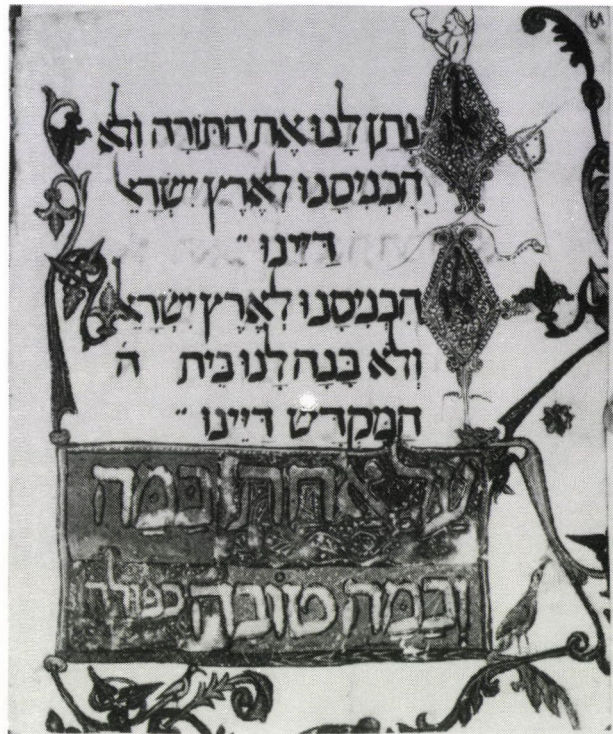 נָתַן לָנוּ אֶת הַתּוֹרָה וְלֹא
הִכְנִיסָנוּ לְאֶרֶץ יִשְׂרָאֵ
דַיֵינוּ ״
הִכְנִיסָנוּ לְאֶרֶץ יִשְׂרָאֵ
וְלֹא בָנָה לָנוּ בֵית ה
הַמִקְדָשׁ דַיֵינוּ ״
עַל אַחַת וְכַמָה
וְכַמָה טוֹבָה כפולה